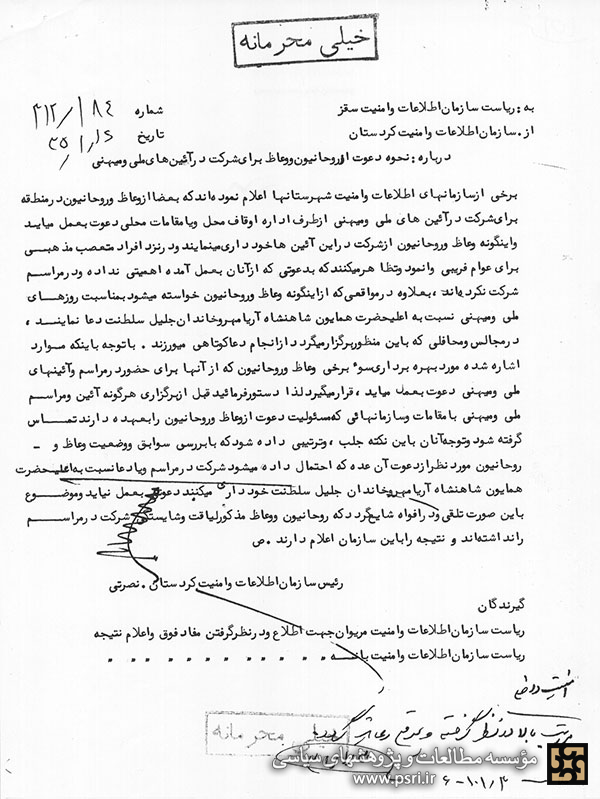 خیلی محرمانه
به : ریاست سازمان اطلاعات وامنیت سقز
شماره ۳۱۲/۱۸۴
از . سازمان اطلاعات وامنیت کردستان
تاریخ
درباره : نحوه دعوت ازروحانیون ووعاظ برای شرکت درآئین های ملی ومیهنی
برخی ازسازمانهای اطلاعات وامنیت شهرستانها اعلام نموده‌اند که بعضا ازوعاظ وروحانیون درمنطقه
برای شرکت درآئین های ملی ومیهنی ازطرف اداره اوقاف محل ویا مقامات محلی دعوت بعمل میاید
واینگونه وعاظ وروحانیون ازشرکت دراین آئین ها خود داری مینمایند ودرنزد افراد متعصب مذهبی
برای عوام فریبی وانمود وتظاهرمیکنند که بدعوتی که ازآنان بعمل آمده اهمیتی نداده ودرمراسم
شرکت نکرده‌اند ، بعلاوه درمواقعی که ازاینگونه وعاظ وروحانیون خواسته میشود بمناسبت روزهای
ملی ومیهنی نسبت به اعلیحضرت همایون شاهنشاه آریامهروخاندان جلیل سلطنت دعا نمایند ،
درمجالس ومحافلی که باین منظوربرگزارمیگردد ازانجام دعا کوتاهی میورزند . با توجه باینکه موارد
اشاره شده مورد بهره برداری سوء برخی وعاظ وروحانیون که ازآنها برای حضوردرمراسم وآئینهای
ملی ومیهنی دعوت بعمل میاید ، قرارمیگیرد لذا دستورفرمائید قبل ازبرگزاری هرگونه آئین ومراسم
ملی ومیهنی با مقامات وسازمانهائی که مسئولیت دعوت ازوعاظ وروحانیون رابعهده دارند تماس
گرفته شود وتوجه آنان باین نکته جلب ، وترتیبی داده شود که با بررسی سوابق ووضعیت وعاظ و -
روحانیون مورد نظرازدعوت آن عده که احتمال داده میشود شرکت درمراسم ویا دعا نسبت به اعلیحضرت
همایون شاهنشاه آریامهروخاندان جلیل سلطنت خود داری میکنند دعوتی بعمل نیاید وموضوع
باین صورت تلقی ودرافواه شایع گردد که روحانیون ووعاظ مذکورلیاقت وشایستگی شرکت درمراسم
رانداشته‌اند و نتیجه راباین سازمان اعلام دارند . ص
رئیس سازمان اطلاعات وامنیت کردستان . نصرتی
گیرندگان
ریاست سازمان اطلاعات وامنیت مریوان جهت اطلاع ودرنظرگرفتن مفاد فوق واعلام نتیجه
ریاست سازمان اطلاعات وامنیت بانه . . . . . . . . . . . .
خیلی محرمانه
بالا درنظر گرفته و
مؤسسه مطالعات و پژوهشهای سیاسی
www.psri.ir